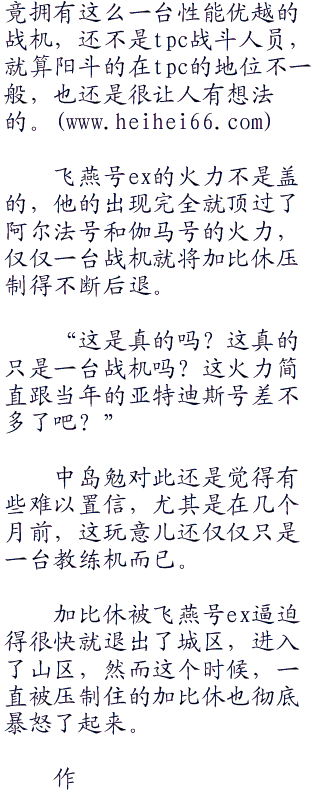 竟拥有这么一台性能优越的
战机，还不是tpc战斗人员，
就算阳斗的在tpc的地位不一
般，也还是很让人有想法
的。(www.heihei66.com)
飞燕号ex的火力不是盖
的，他的出现完全就顶过了
阿尔法号和伽马号的火力，
仅仅一台战机就将加比休压
制得不断后退。
“这是真的吗？这真的
只是一台战机吗？这火力简
直跟当年的亚特迪斯号差不
多了吧？”
中岛勉对此还是觉得有
些难以置信，尤其是在几个
月前，这玩意儿还仅仅只是
一台教练机而已。
加比休被飞燕号ex逼迫
得很快就退出了城区，进入
了山区，然而这个时候，一
直被压制住的加比休也彻底
暴怒了起来。
作